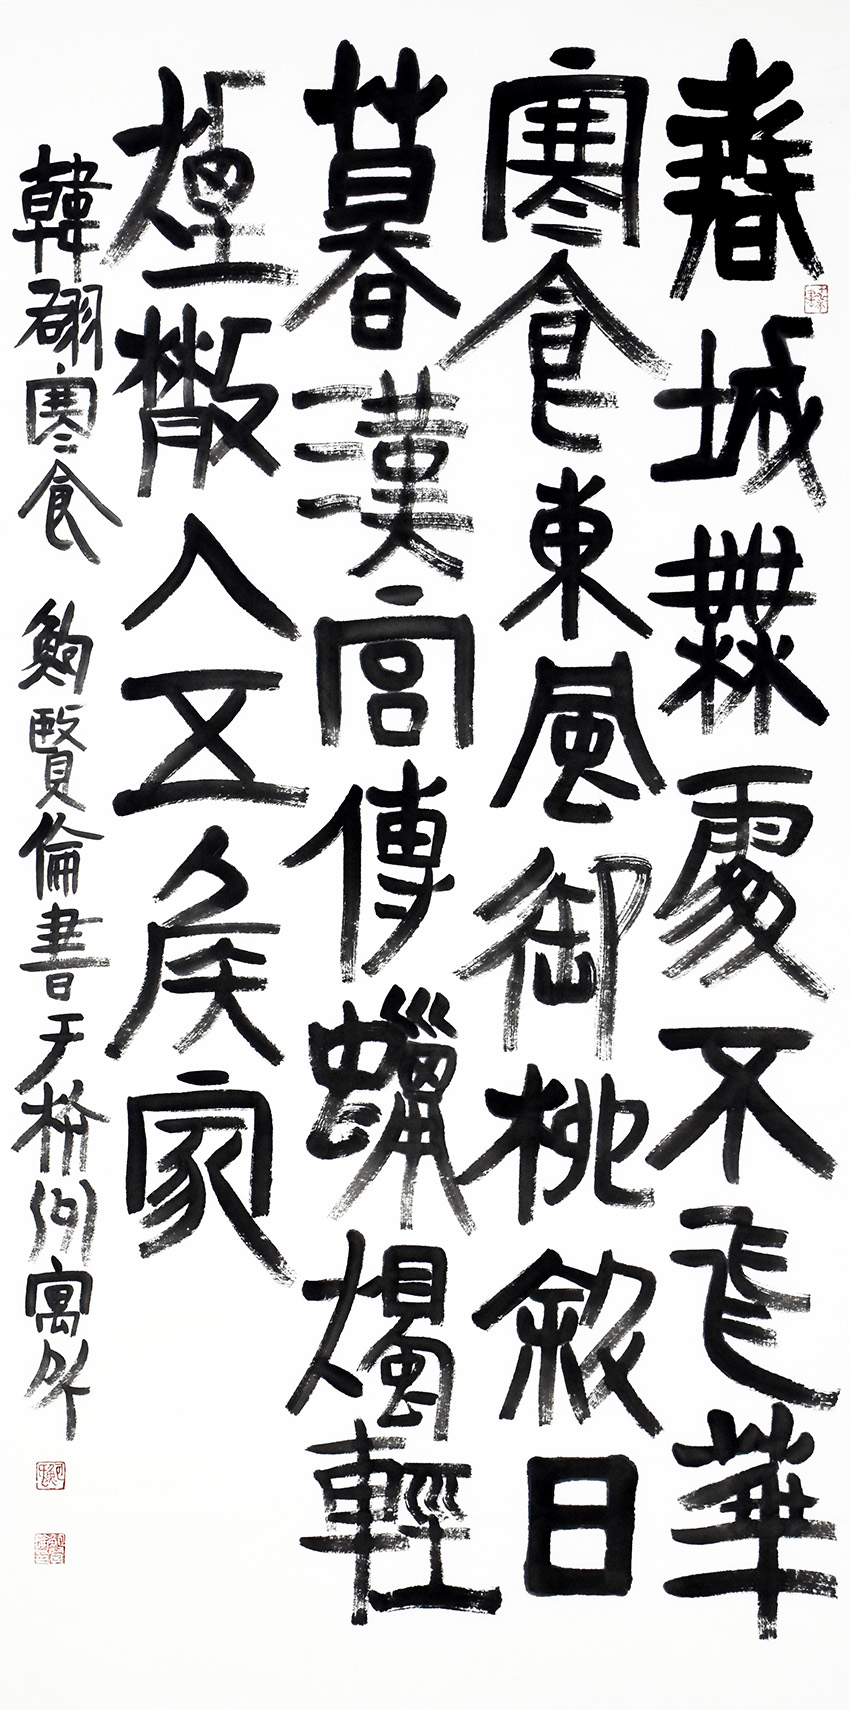 春城無處不飛華
寒食東風御柳斜日
暮漢宮傳蠟燭輕
煙散入五侯家
韓翃寒食 鮑賢倫書于杭州寓所